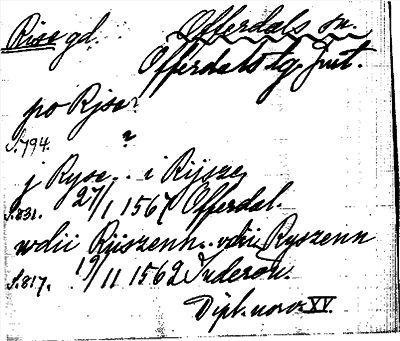 Risa gd. Offerdals sn.
Offerdals tg. Jmt.
po Rjsa?
S.794. ?
j Rysa.. i Rijsze
S.831. 27/1 1567 Offerdal.
wdii Rijszenn.. vdii Ryszenn
S.817. 19/11 1562
Dipl. norv. XV.